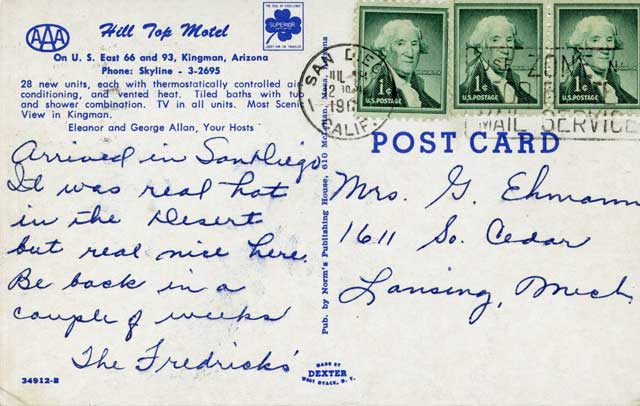 AAA
Hill Top Motel
THE SEAL OF EXCELLENCE
SUPERIOR
On U. S. East 66 and 93, Kingman, Arizona
Phone: Skyline - 3-2695
28 new units, each with thermostatically controlled air
conditioning, and vented heat. Tiled baths with tub
and shower combination. TV in all units. Most Scenic
View in Kingman.
Eleanor and George Allan, Your Hosts
Arrived in San Diego
It was real hot
in the Desert
but real nice here.
Be back in a
couple of weeks
The Fredricks'
34912-B
Pub. by Norm's Publishing House, 610 Mesa, Arizona
MADE BY
DEXTER
WEST NYACK, N. Y.
1¢
U.S. POSTAGE
1¢
U.S. POSTAGE
1¢
U.S. POSTAGE
SAN DIEGO
CALIF.
USE ZONE
MAIL SERVICE
POST CARD
Mrs. G. Ehmann
1611 So. Cedar
Lansing, Mich.